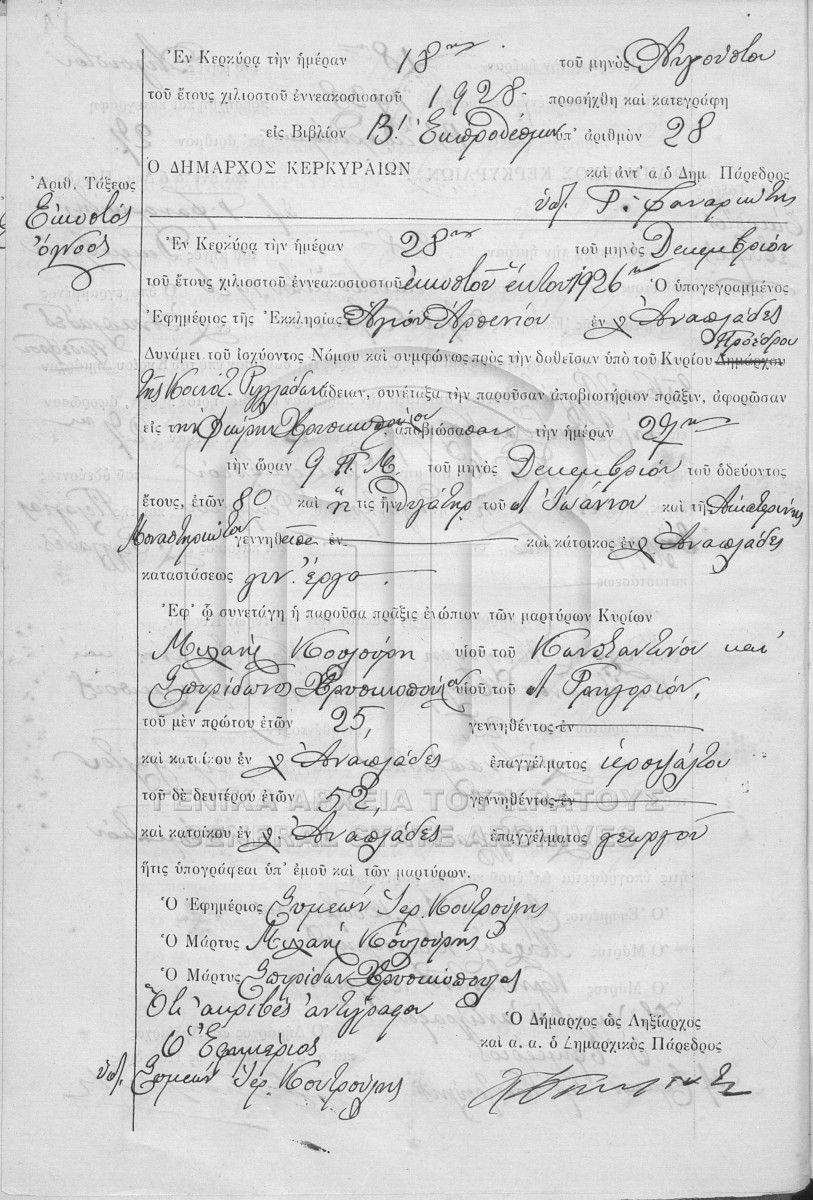 Ἐν Κερκύρᾳ τὴν ἡμέραν 18ην τοῦ μηνὸς Αὐγούστου
τοῦ ἔτους χιλιοστοῦ ἐννεακοσιοστοῦ 1928 προσήχθη καὶ κατεγράφη
εἰς Βιβλίον Β! Ἐκπροθέσμων ὑπ' ἀριθμὸν 28
Ὁ ΔΗΜΑΡΧΟΣ ΚΕΡΚΥΡΑΙΩΝ καὶ ἀντ' α ὁ Δημ. Πάρεδρος
Ἀριθ. Τάξεως
Εἰκοστὸς
ὄγδοος
ὑπ. Γ. Φαναριώτης
Ἐν Κερκύρᾳ τὴν ἡμέραν 28ην τοῦ μηνὸς Δεκεμβρίου
τοῦ ἔτους χιλιοστοῦ ἐννεακοσιοστοῦ εἰκοστοῦ ἕκτου 1926 Ὁ ὑπογεγραμμένος
Ἐφημέριος τῆς Ἐκκλησίας Ἁγίου Ἀρσενίου ἐν χ Ἀναπλάδες
Προέδρου
Δυνάμει τοῦ ἰσχύοντος Νόμου καὶ συμφώνως πρὸς τὴν δοθεῖσαν ὑπὸ τοῦ Κυρίου Δημάρχου
τῆς Κοινότ. Ριγγλάδων ἄδειαν, συνέταξα τὴν παροῦσαν ἀποβιωτήριον πρᾶξιν, ἀφορῶσαν
εἰς τὴν Χρυσικοπούλου ἀποβιώσασαν τὴν ἡμέραν 27ην
τὴν ὥραν 9 π.μ. τοῦ μηνὸς Δεκεμβρίου τοῦ ὁδεύοντος
ἔτους, ἐτῶν 80 καὶ ἥ τις ἦν θυγάτηρ τοῦ Ἰωάννου καὶ τῆς Αἰκατερίνης
Μοναστηριώτου γεννηθεῖσα ἐν καὶ κάτοικος ἐν χ. Ἀναπλάδες
καταστάσεως γυν. ἔργα.
Ἐφ' ᾧ συνετάγη ἡ παροῦσα πρᾶξις ἐνώπιον τῶν μαρτύρων Κυρίων
Μιχαὴλ Κουλούρη υἱοῦ τοῦ Κωνσταντίνου καὶ
Σπυρίδωνος Χρυσικοπούλου υἱοῦ τοῦ Γρηγορίου,
τοῦ μὲν πρώτου ἐτῶν 25, γεννηθέντος ἐν
καὶ κατοίκου ἐν χ Ἀναπλάδες ἐπαγγέλματος ἱεροψάλτου
ΓΕΝΙΚΑ ΑΡΧΕΙΑ ΤΟΥ ΚΡΑΤΟΥΣ
τοῦ δὲ δευτέρου ἐτῶν 52, γεννηθέντος ἐν
GENERAL STATE ARCHIVES
καὶ κατοίκου ἐν χ. Ἀναπλάδες ἐπαγγέλματος γεωργοῦ
ἥτις ὑπογράφεαι ὑπ' ἐμοῦ καὶ τῶν μαρτύρων.
Ὁ Ἐφημέριος Συμεὼν Ἱερ. Κουτρούλης
Ὁ Μάρτυς Μιχαὴλ Κουλούρης
Ὁ Μάρτυς Σπυρίδων Χρυσικόπουλος
Ὅτι ἀκριβὲς ἀντίγραφον
Ὁ Ἐφημέριος
ὑπ. Συμεὼν Ἱερ. Κουτρούλης
Ὁ Δήμαρχος ὡς Ληξίαρχος
καὶ α. α. ὁ Δημαρχικὸς Πάρεδρος